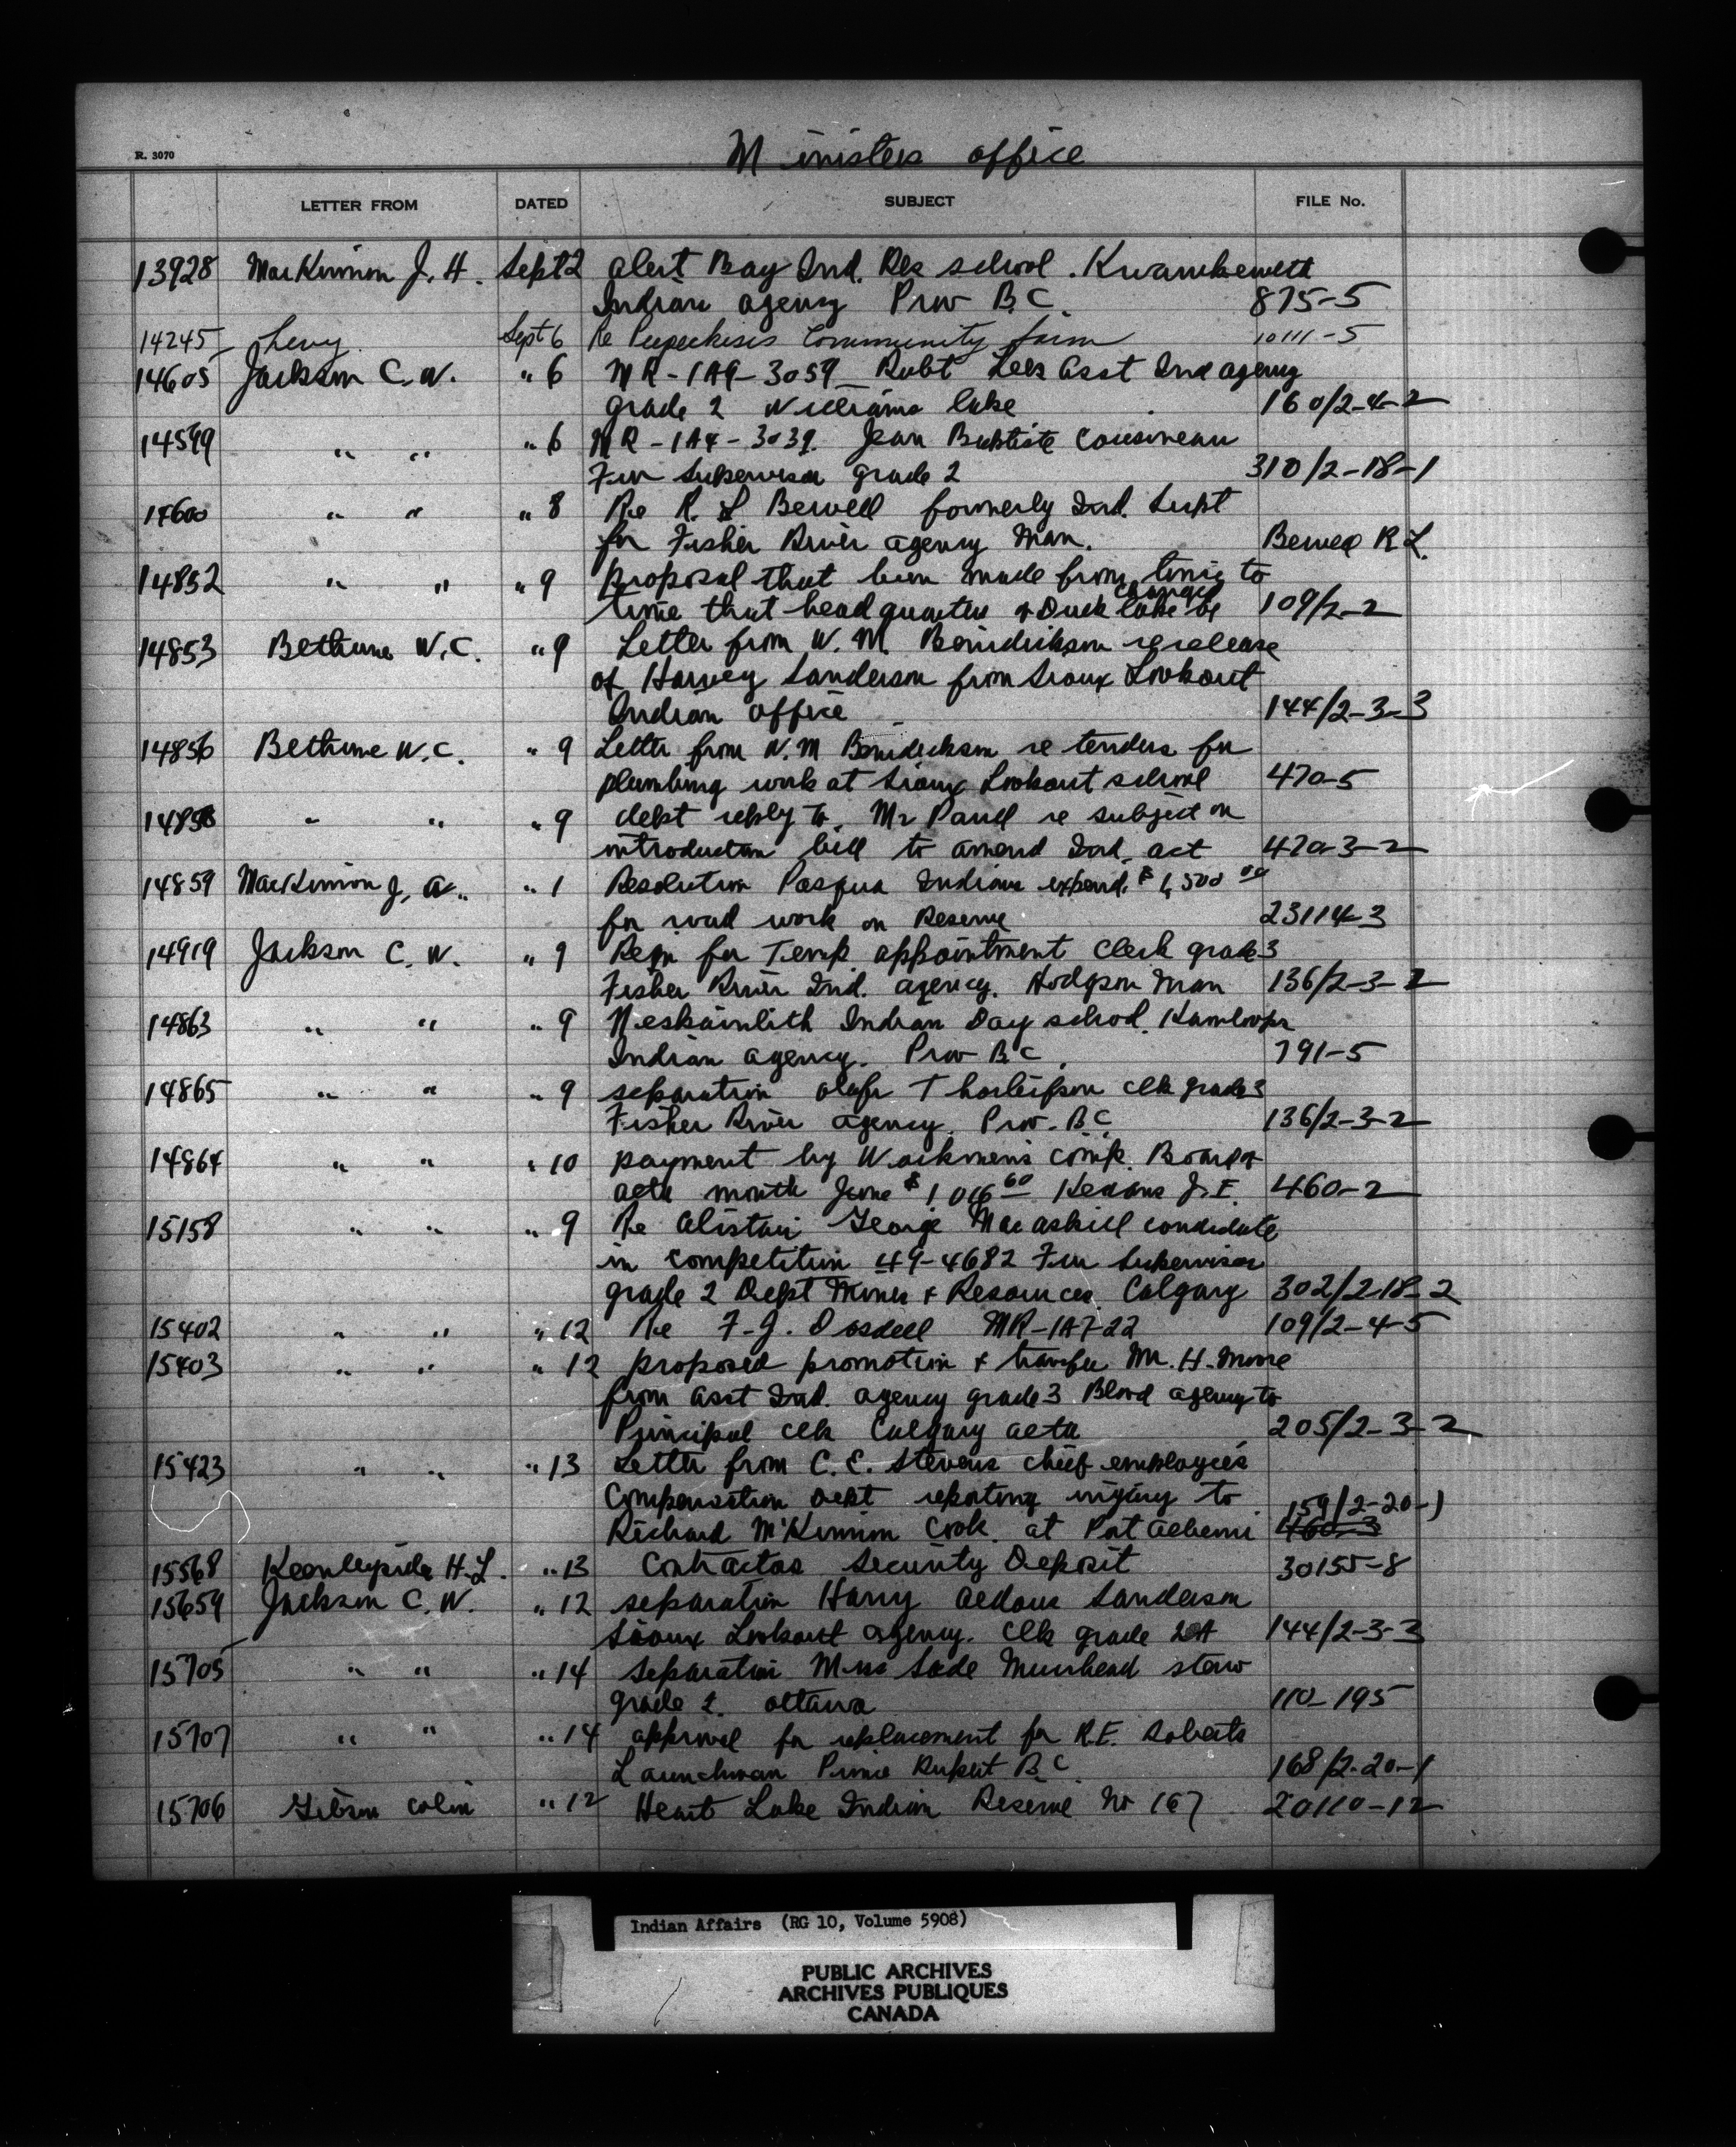 R. 3070
Ministers office
LETTER FROM DATED SUBJECT FILE No.
13928 MacKinnon J. H. Sept 2 Alert Bay Ind. Res school. Kwawkewlth
Indian agency Prov B.C. 875-5
14245 Levy Sept 6 Re Peepeekisis Community farm 10111-5
14605 Jackson C. W. " 6 MR-1A9-3059 Robt Lees Asst Ind agency
grade 2 Williams lake 160/2-4-2
14599 " " " 6 MR-1A4-3039. Jean Baptiste Cousineau
Fur Supervisor grade 2 310/2-18-1
14600 " " " 8 Re R. L Bewell formerly Ind. Supt
for Fisher River agency Man. Bewell R L.
14852 " " " 9 proposal that been made from time to
time that head quarters of Duck lake be changed 109/2-2
14853 Bethune W. C. " 9 Letter from W. M. Benidickson re release
of Harvey Sanderson from Sioux Lookout
Indian office 144/2-3-3
14856 Bethune W. C. " 9 Letter from W. M Benidickson re tenders for
plumbing work at Sioux Lookout school 470-5
14858 " " " 9 dept reply to Mr re subject on
introduction bill to amend Ind. act 470-3-2
14859 MacKinnon J, A. " 1 Resolution Pasqua Indians expend. $1,500 00
for road work on Reserve 23114-3
14919 Jackson C. W. " 9 for Temp appointment Clerk grade 3
Fisher River Ind. agency. Hodgson Man 136/2-3-2
14863 " " " 9 Neskainlith Indian Day school. Kamloops
Indian agency. Prov B C. 791-5
14865 " " " 9 separation Thorleifson clk grade 3
Fisher River agency. Prov. B.C. 136/2-3-2
14864 " " " 10 payment by Workmen's comp. Board of
month June $1 016 60 J. E. 460-2
15158 " " " 9 Re Alistair George Macaskill candidate
in competition 49-4682 Fur Supervisor
grade 2 Dept Mines & Resources Calgary 302/2-18-2
15402 " " " 12 Re F. J. Dosdell MR-1A7-22 109/2-4-5
15403 " " " 12 proposed promotion & transfer Mr. H. Moore
from Asst Ind. agency grade 3 Blood agency to
Principal clk Calgary 205/2-3-2
15423 " " " 13 Letter from C. E. Stevens chief employees
Compensation Dept reporting injury to 159/2-20-1
Richard McKinnon Cook at Port Alberni 460-3
15568 Keenleyside H. L. " 13 Contractors Security Deposit 30155-8
15659 Jackson C. W. " 12 separation Harry Aedous Sanderson
Sioux Lookout agency. Clk grade 2A 144/2-3-3
15705 " " " 14 separation Miss Sade Muirhead steno
grade 2. Ottawa 110-195
15707 " " " 14 approval for replacement for R.E. Roberts
Launchman Prince Rupert B.C. 168/2-20-1
15706 Gibson Colin " 12 Heart Lake Indian Reserve No 167 20110-12
Indian Affairs (RG 10, Volume 5908)
PUBLIC ARCHIVES
ARCHIVES PUBLIQUES
CANADA